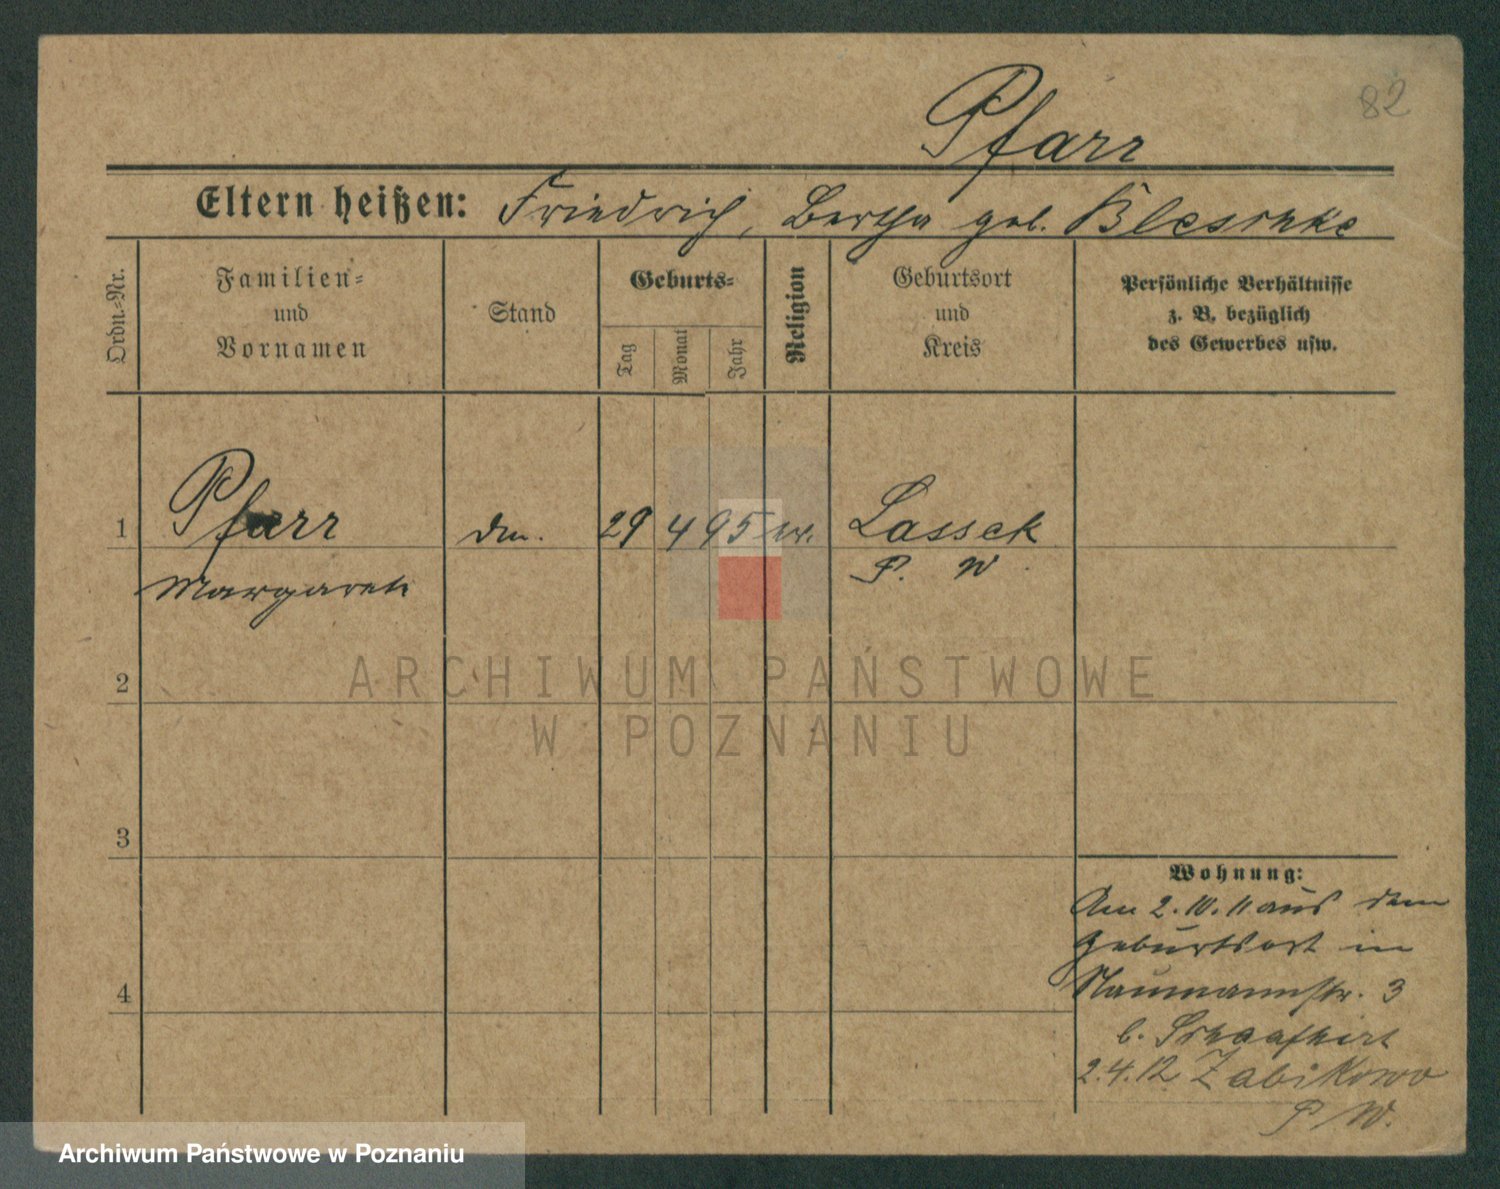 82
Pfarr
Eltern heißen: Friedrich, Bertha geb. Bleschke
Ordn.-Nr.
Familien-
und
Vornamen
Stand
Geburts-
Tag
Monat
Jahr
Religion
Geburtsort
und
Kreis
Persönliche Verhältnisse
z. B. bezüglich
des Gewerbes usw.
1 Pfarr 29 4 95 Lassek
Margareth P. W.
2
3
4
Wohnung:
Am 2.10.11 aus dem
Geburtsort in
Naumannstr. 3
b.
2.4.12 Zabikowo
P W.
ARCHIWUM PAŃSTWOWE
W POZNANIU
Archiwum Państwowe w Poznaniu